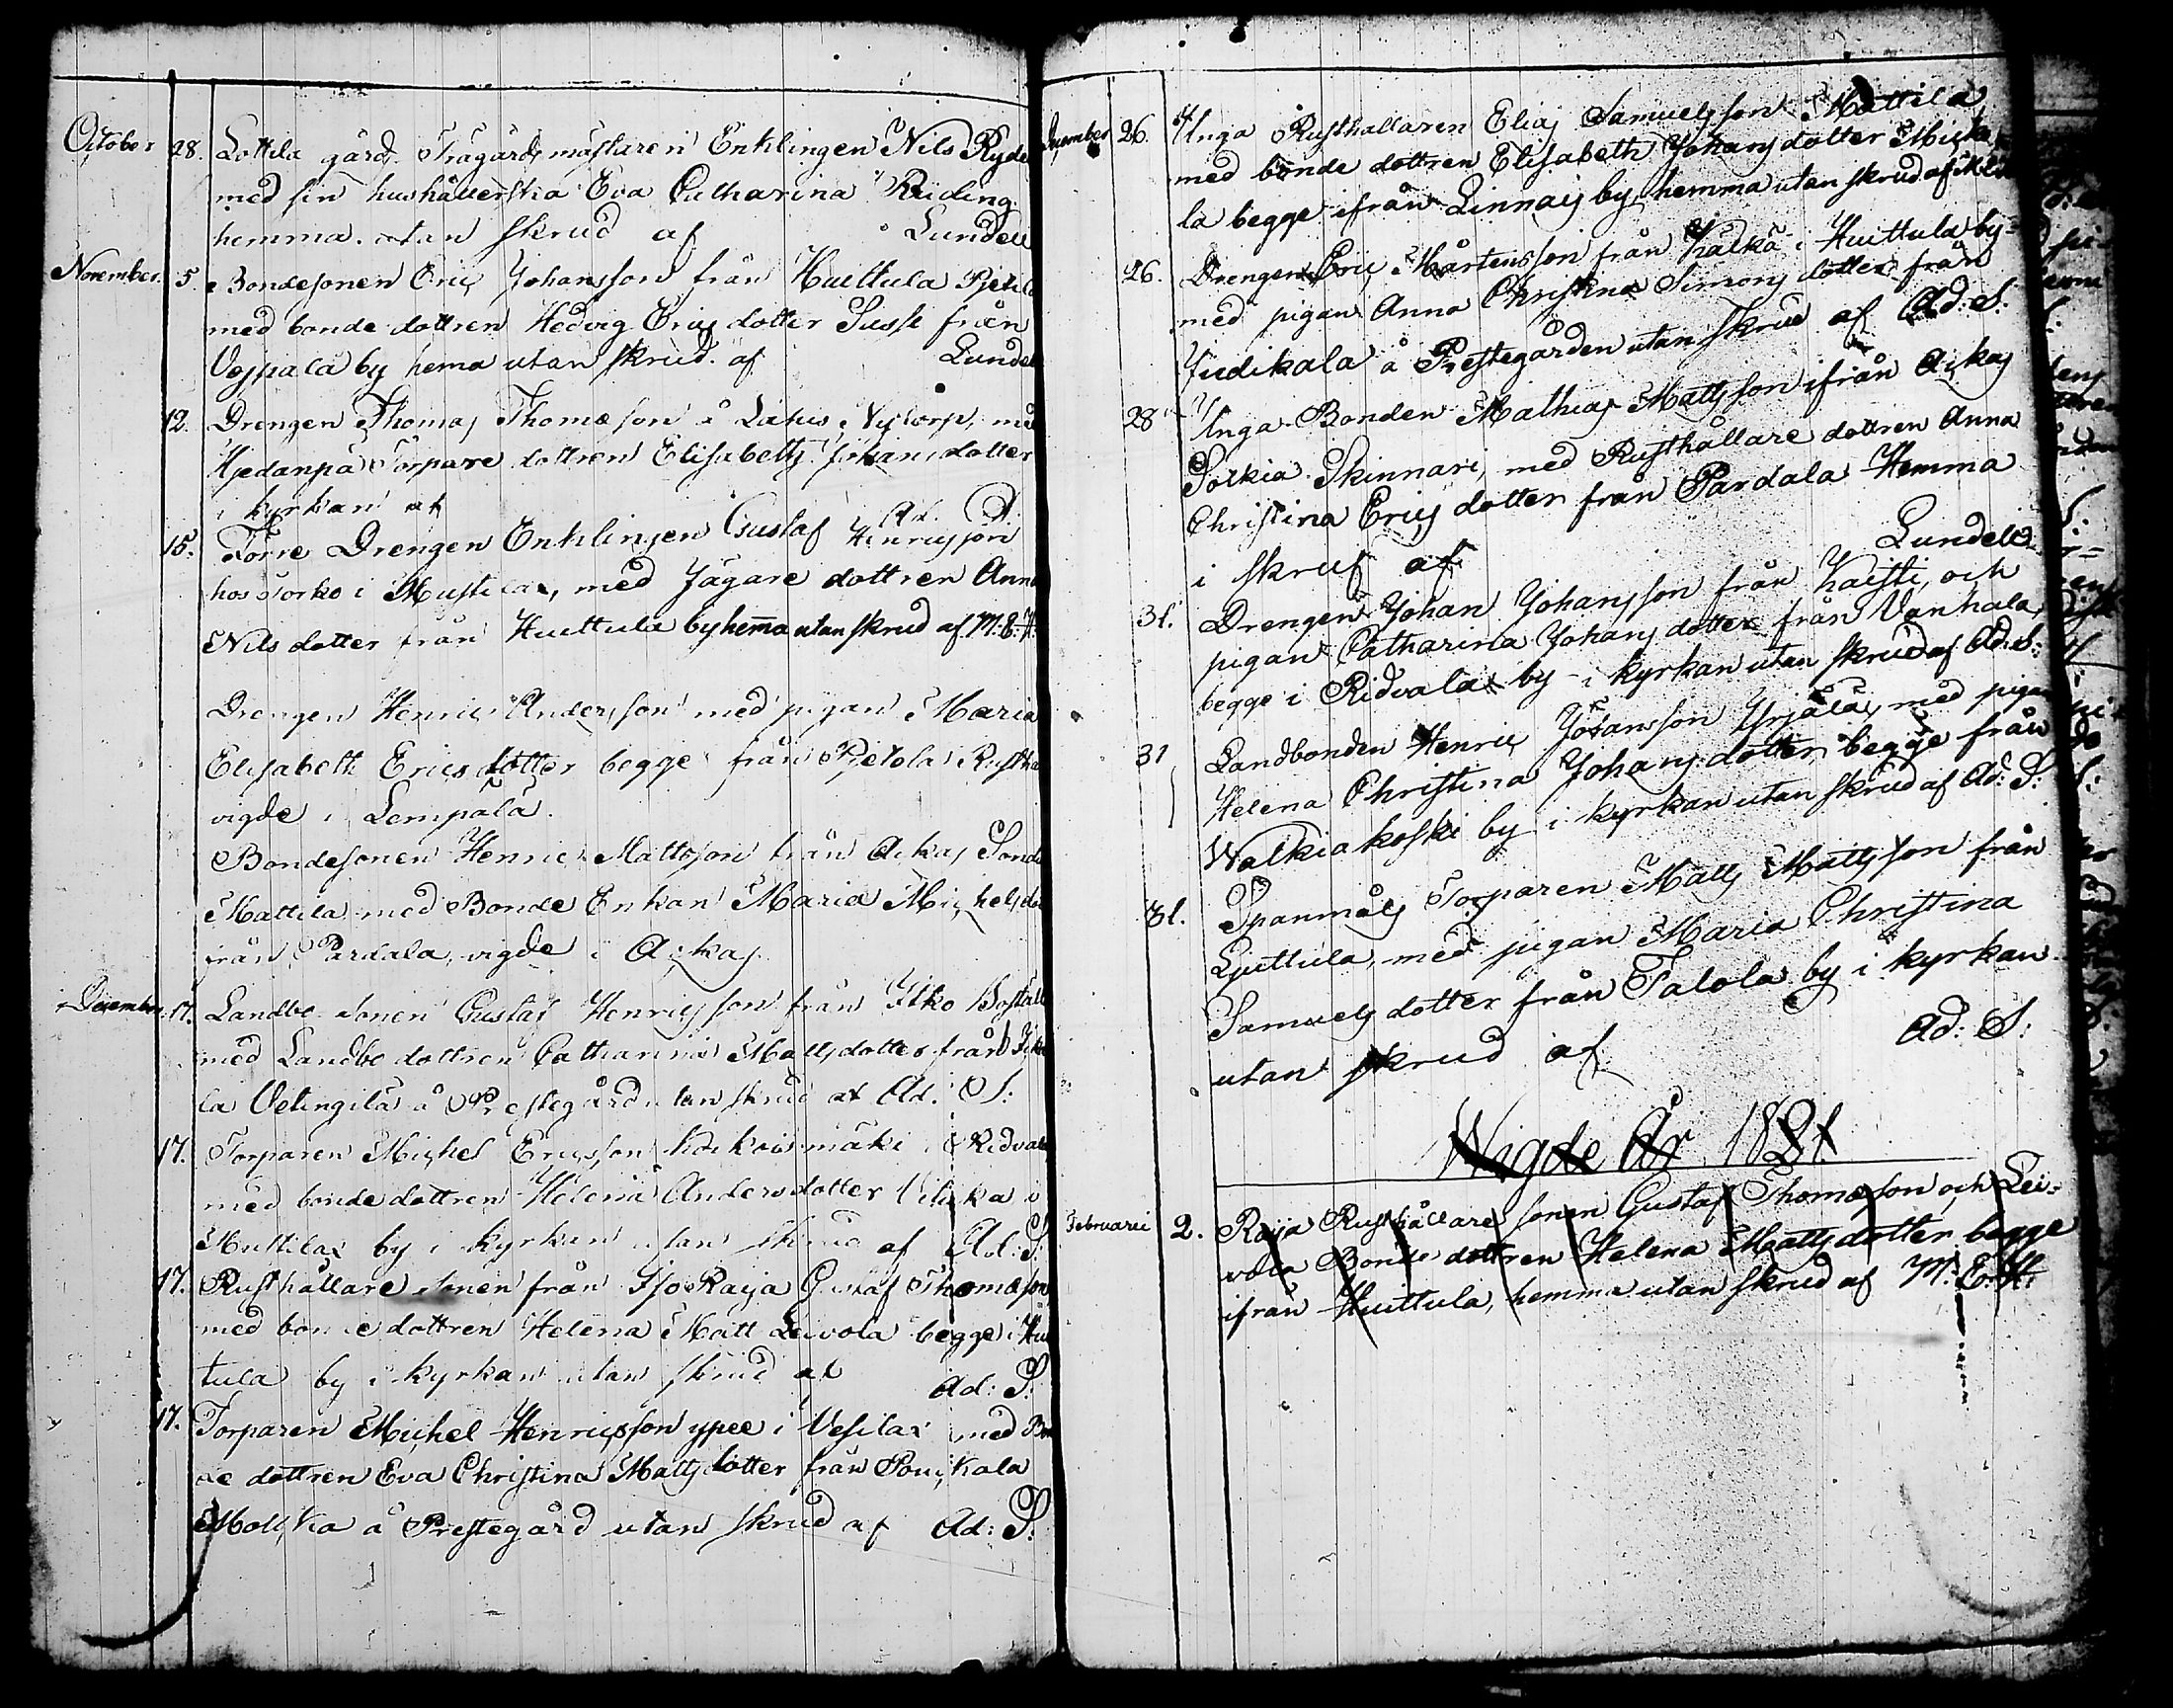 October 28. Lottila gård. Trägårdsmästaren Enklingen Nils Ryde
med sin hushållerska Eva Catharina Ruding
hemma utan skrud af Lundell
November 5. Bondesonen Eric Johansson från Huittula
med bonde dottren Hedvig Erics dotter Susse från
Vespala by hema utan skrud. af Lunde
12. Drengen Thomas Thomæson å Nytorp, me
Torpare dottren Elisabeth Johans dotter
i kyrkan af Ad. S.
15. Förre Drengen Enklingen Gustaf Henricsson
hos Torko i Mustila, med Jägare dottren Ann
Nils dotter från Huittula by hema utan skrud af M: E: H:
Drengen Henric Andersson med pigan Maria
Elisabeth Erics dotter begge från Pietola Rustha
vigde i Lempälä.
Bondesonen Henric Mattsson från Ackas
Mattila med Bonde Enkan Maria Michelsdo
från Pardala, vigde i Ackas.
December 17. Landbo sonen Gustaf Henricsson från Itko Boställ
med Landbo dottren Catharina Mattsdotter från
la å Prestegård utan skrud af Ad: S:
17. Torparen Michel Ericsson i Ridvala
med bondedottren Helena Andersdotter i
by i kyrkan utan skrud af Ad: S.
17. Rusthållare sonen från Iso Raija Gustaf Thomæson
med bonde dottren Helena Matt Leivola begge i Hui
tula by i kyrkan utan skrud af Ad: S:
17. Torparen Michel Henricsson ypee i Vesilax med Bon
de dottren Eva Christina Mattsdotter från
å Prestegård utan skrud af Ad: S:
December 26. Unga Rusthållaren Elias Samuelsson Mattila
med bonde dottren Elisabeth Johans dotter Micko
la begge ifrån Linnais by, hemma utan skrud af
26. Drengen Eric Mårtensson från Kalkå i Huittula by
med pigan Anna Christina Simons dotter från
Judikala å Prestegården utan skrud af Ad: S:
28 Unga Bonden Mathias Mattsson ifrån Ackas
Sorkia Skinnari, med Rusthållare dottren Anna
Christina Erics dotter från Pardala Hemma
i skrud af Lundell
31. Drengen Johan Johansson från Kaisti, och
pigan Catharina Johans dotter från Vanhala
begge i Ridvala by i kyrkan utan skrud af Ad: S:
31 Landbonden Henric Johansson Yrjälä, med pigan
Helena Christina Johans dotter begge från
Walkiakoski by i kyrkan utan skrud af Ad: S:
31. Spanmåls Torparen Matts Mattsson från
Ljuttula, med pigan Maria Christina
Samuels dotter från Talola by i kyrkan
utan skrud af Ad: S:
Wigde År 1821
Februarii 2. Raija Rusthållare sonen Gustaf Thomæson och Lei-
vola Bonde dottren Helena Matts dotter begge
ifrån Huittula, hemma utan skrud af M: E: H: